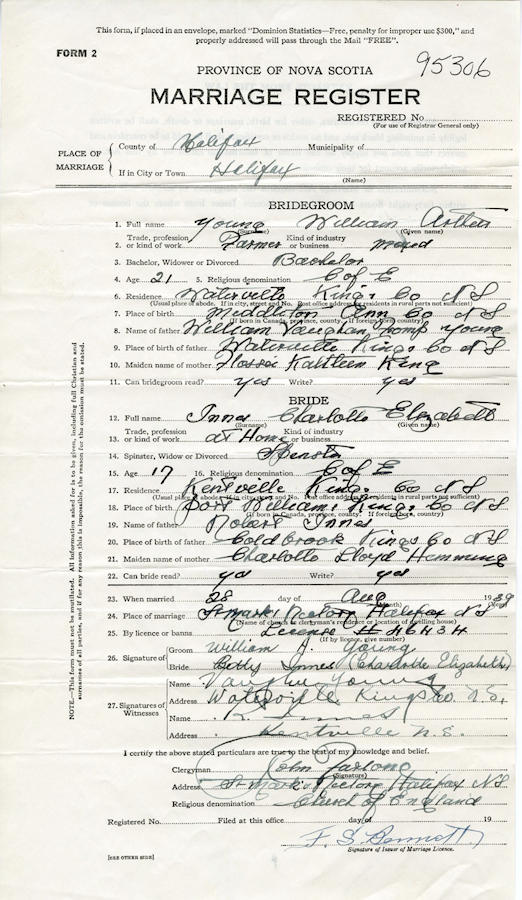 This form, if placed in an envelope, marked "Dominion Statistics—Free, penalty for improper use $300," and
properly addressed will pass through the Mail "FREE".
FORM 2
95306
PROVINCE OF NOVA SCOTIA
MARRIAGE REGISTER
REGISTERED No.
(For use of Registrar General only)
PLACE OF MARRIAGE
County of Halifax Municipality of
If in City or Town Halifax
(Name)
BRIDEGROOM
1. Full name Young William
(Surname) (Given name)
Trade, profession Kind of industry
2. or kind of work Farmer or business mixed
3. Bachelor, Widower or Divorced Bachelor
4. Age 21 5. Religious denomination C of E
6. Residence Waterville Kings Co N S
(Usual place of abode. If in city, street and No. Post office address for residents in rural parts not sufficient)
7. Place of birth Middleton Ann Co N S
(If born in Canada, province, county. If foreign born, country)
8. Name of father William Vaughan Young
9. Place of birth of father Waterville Kings Co N S
10. Maiden name of mother Flossie Kathleen King
11. Can bridegroom read? yes Write? yes
BRIDE
12. Full name Innes Charlotte Elizabeth
(Surname) (Given name)
Trade, profession Kind of industry
13. or kind of work at Home or business
14. Spinster, Widow or Divorced Spinster
15. Age 17 16. Religious denomination C of E
17. Residence Kentville Kings Co N S
(Usual place of abode. If in city, street and No. Post office address for residents in rural parts not sufficient)
18. Place of birth Port Williams Kings Co N S
(If born in Canada, province, county. If foreign born, country)
19. Name of father Robert Innes
20. Place of birth of father Coldbrook Kings Co N S
21. Maiden name of mother Charlotte Lloyd Hemming
22. Can bride read? yes Write? yes
23. When married 28 day of Aug 1939
(Month) (Year)
24. Place of marriage St Marks Rectory Halifax N S
(Name of church or clergyman's residence or location of dwelling house)
25. By licence or banns License # 46434
(If by licence, give number)
26. Signature of
Groom William A. Young
Bride Innes (Charlotte Elizabeth)
27. Signatures of Witnesses
Name Vaughn Young
Address Waterville Kings Co. N.S.
Name R. Innes
Address Kentville N.S.
I certify the above stated particulars are true to the best of my knowledge and belief.
Clergyman John Furlong
(Signature)
Address St Mark's Rectory Halifax NS
Religious denomination Church of England
Registered No. Filed at this office day of 19
F. S. Bennett
Signature of Issuer of Marriage Licence.
[SEE OTHER SIDE]
NOTE.—This form must not be mutilated. All information asked for is to be given, including full Christian and
surnames of all parties, and if for any reason this is impossible, the reason for the omission must be stated.